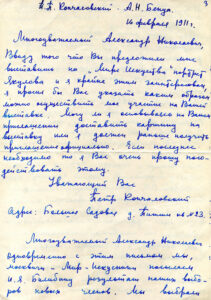 3
П.П. Кончаловский - А.Н. Бенуа.
16 февраля 1911 г.
Многоуважаемый Александр Николаевич,
Ввиду того что Вы предложили мне
выставить на „Мире Искусства" портрет
Якулова и я крайне этим заинтересован,
я просил бы Вас указать каким образом
можно осуществить мое участие на Вашей
выставке. Могу ли я основываясь на Вашем
приглашении доставить картину на
выставку или я должен раньше получить
приглашение официально. Если последнее
необходимо то я Вас очень прошу посо-
действовать этому.
Уважающий Вас
Петр Кончаловский
Адрес: Большая Садовая д. Пигит кв № 23.
Многоуважаемый Александр Николаевич
одновременно с этим письмом мы,
москвичи - Мир-Искусники посылаем
И.Я. Билибину результаты наших выбо-
ров новых членов. Мы выбрали